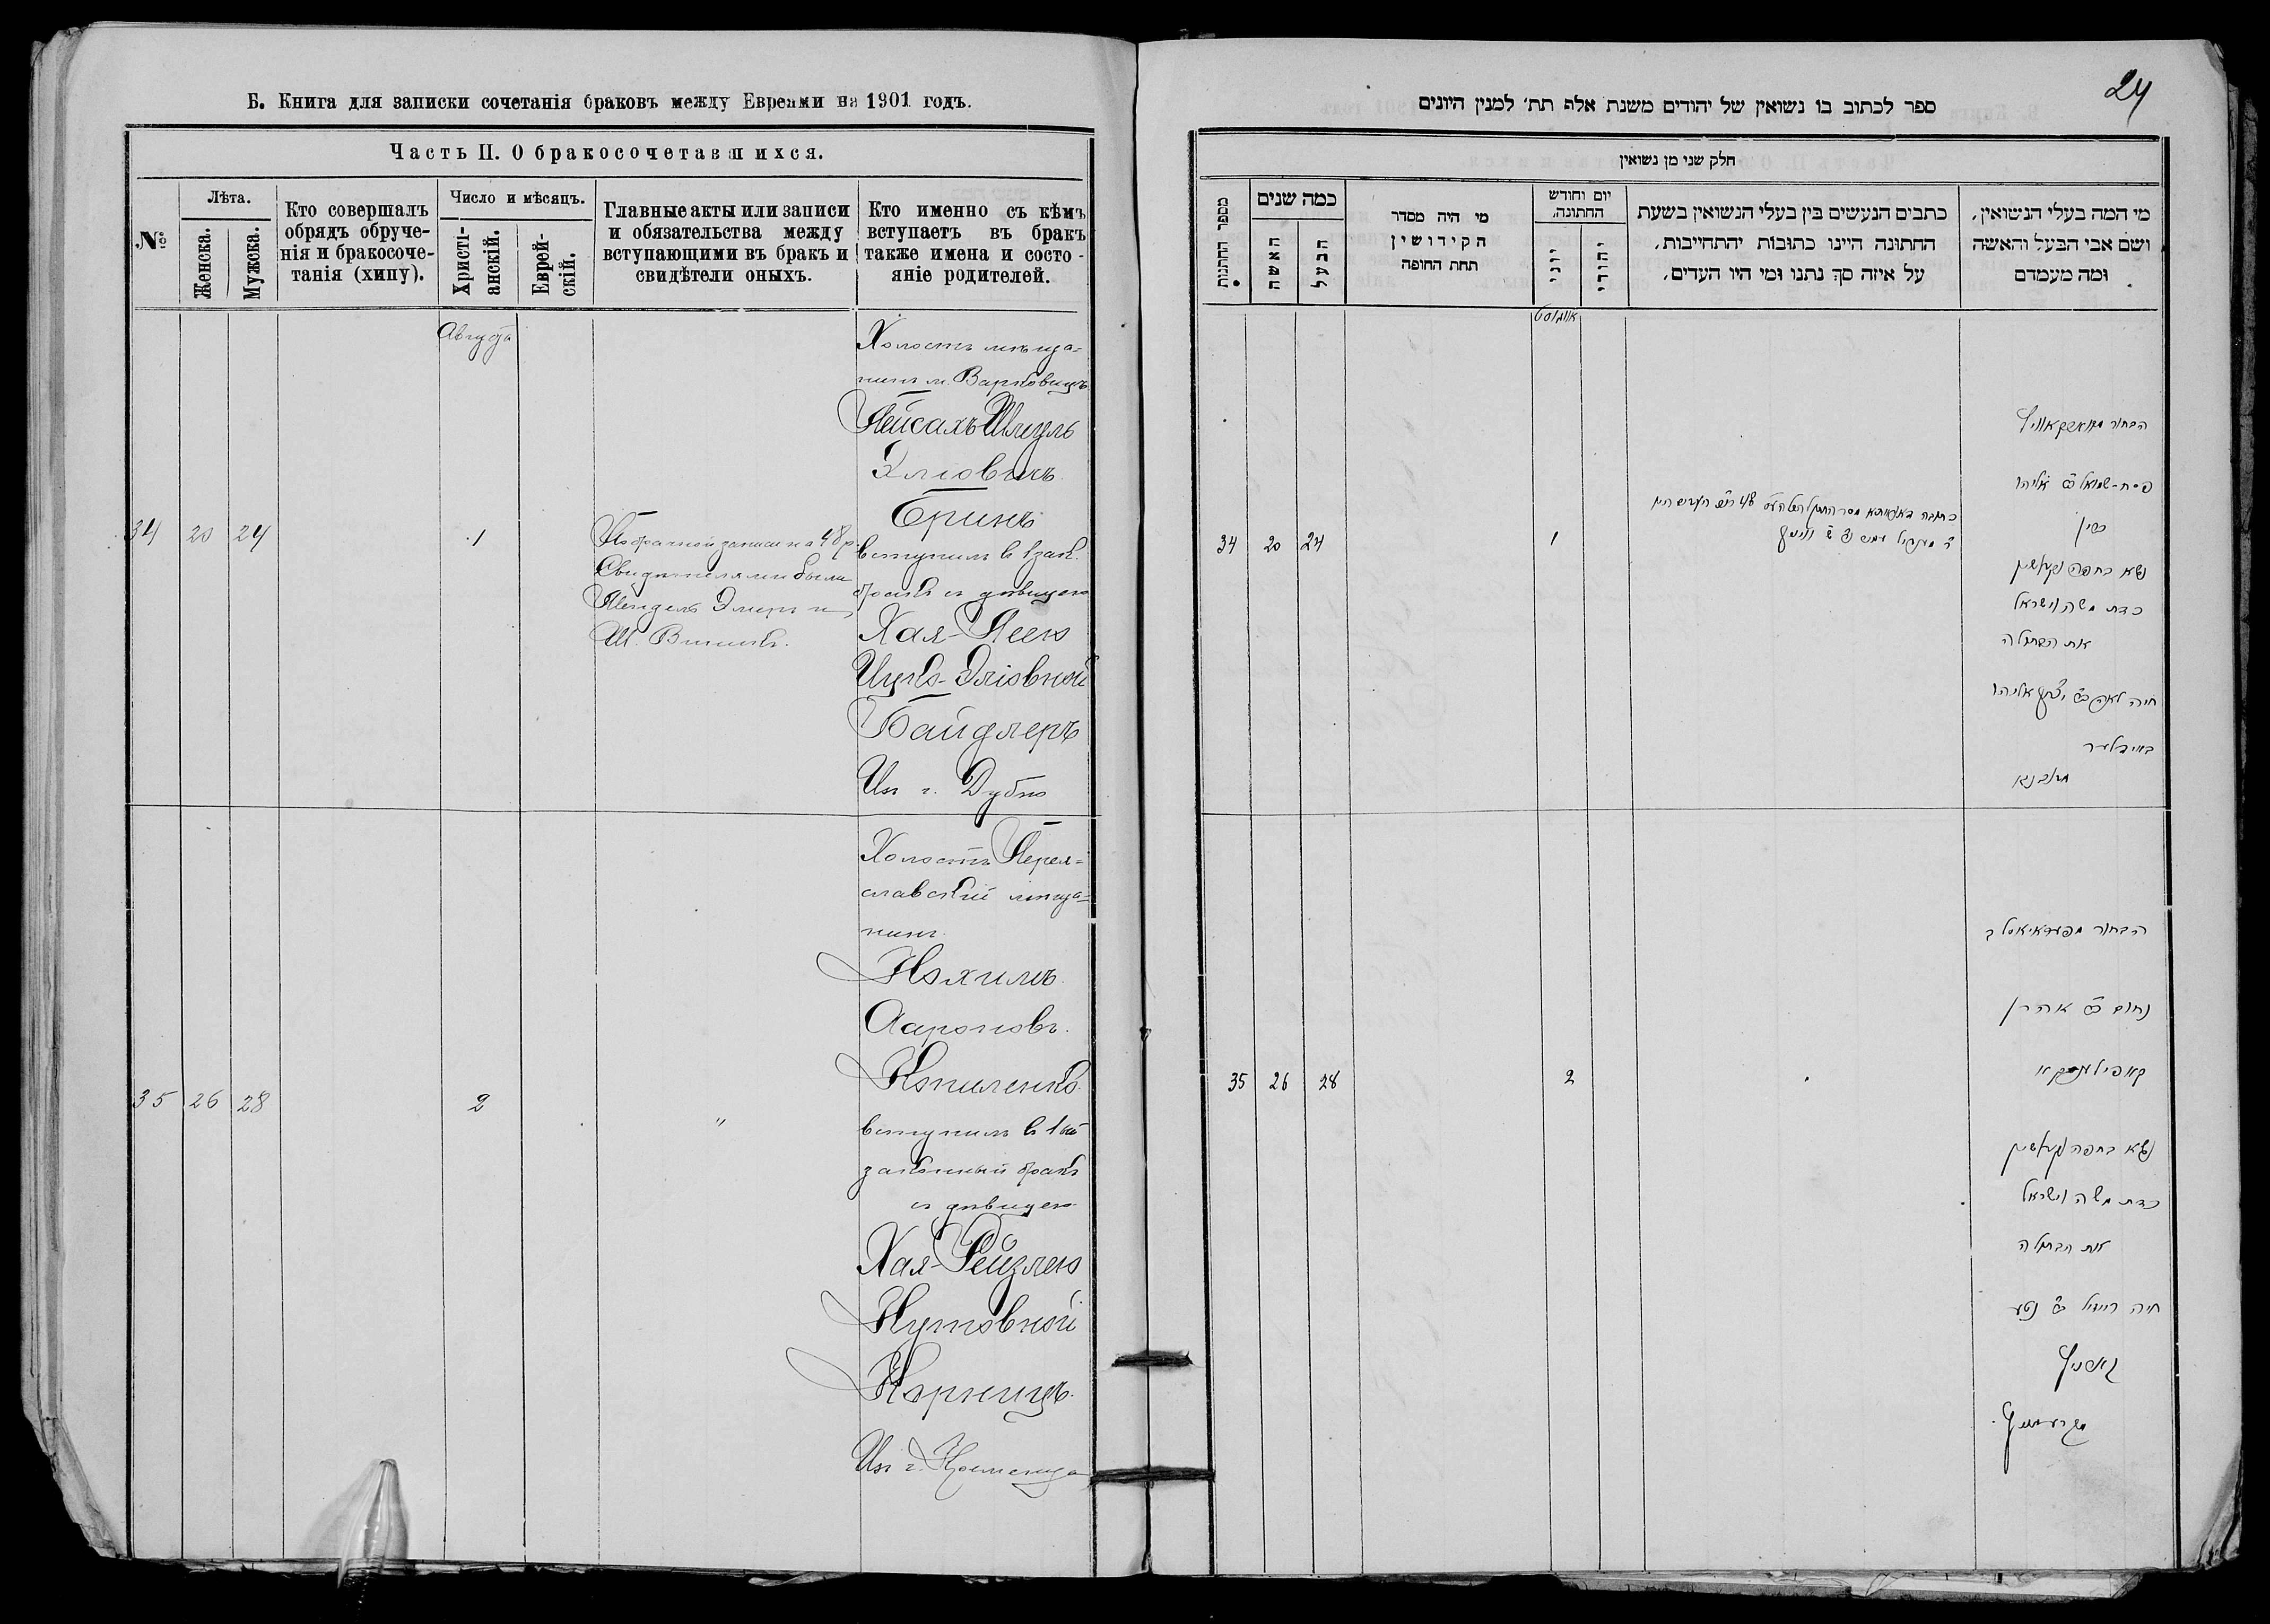 Б. Книга для записки сочетанія браковъ между Евреями на 1901 годъ.
Часть II. О бракосочетавшихся.
№
Лѣта.
Женска.
Мужска.
Кто совершалъ
обрядъ обруче-
нія и бракосоче-
танія (хипу).
Число и мѣсяцъ.
Христі-
анскій.
Еврей-
скій.
Главные акты или записи
и обязательства между
вступающими въ бракъ и
свидѣтели оныхъ.
Кто именно съ кѣмъ
вступаетъ въ бракъ
также имена и состо-
яніе родителей.
Августа
34
20
24
1
записи на 48 р.
Свидѣтелями были
Ш.
Холостъ мѣща-
нинъ м. Варковичъ
Пейсахъ Шмуль
Эліовичъ
вступилъ в 1 зак.
бракъ с дѣвицею
Хая-Леею
Ицко-Эліовной
Байдлеръ
Из г. Дубно
35
26
28
2
"
Холостъ Перея-
славскій мѣща-
нинъ
Нахимъ
Аароновъ
Копиленко
вступилъ в 1ый
законный бракъ
с дѣвицею
Хая-Рейзлею
Нутовной
Из г. Кременца
24
ספר לכתוב בו נשואין של יהודים משנת אלף תת׳ למנין היונים
חלק שני מן נשואין
מספר החתונות
כמה שנים
האשה
הבעל
מי היה מסדר
הקידושין
תחת החופה
יום וחודש
החתונה.
יוני
יהודי
כתבים הנעשים בין בעלי הנשואין בשעת
החתונה היינו כתובות יהתחייבות,
על איזה סך נתנו ומי היו העדים,
מי המה בעלי הנשואין,
ושם אבי הבעל והאשה
ומה מעמדם
אוגוסט
34
20
24
1
48
הבחור
פסח-שמואל אליהו
נשא בחפה וקדושין
כדת משה וישראל
את הבתולה
חיה לאה יצחק אליהו
באידלער
מדובנא
35
26
28
2
הבחור
נחום אהרן
נשא בחפה וקדושין
כדת משה וישראל
את הבתולה
חיה רייזיל נטע